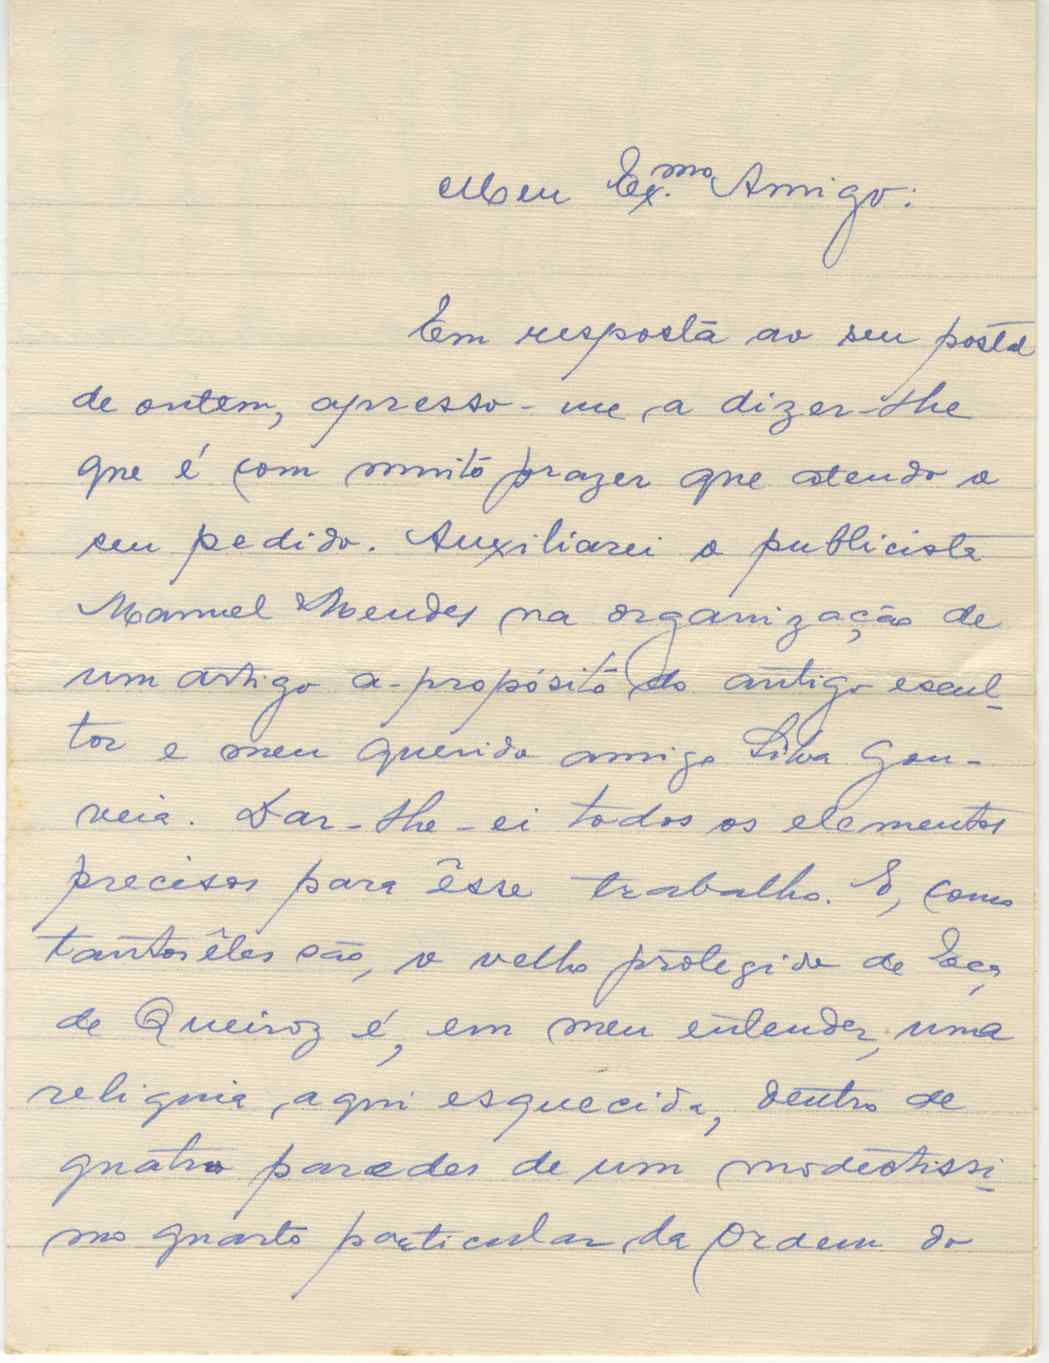 Meu Ex.mo Amigo:
Em resposta ao seu postal
de ontem, apresso-me a dizer-lhe
que é com muito prazer que atendo o
seu pedido. Auxiliarei o publicista
Manuel Mendes na organização de
um artigo a-propósito do antigo escul-
tor e meu querido amigo Silva Gou-
veia. Dar-lhe-ei todos os elementos
precisos para êsse trabalho. E, como
tantos êles são, o velho protegido de Eça
de Queiroz é, em meu entender, uma
reliquia, aqui esquecida, dentro de
quatro paredes de um modestissi-
mo quarto particular da Ordem do